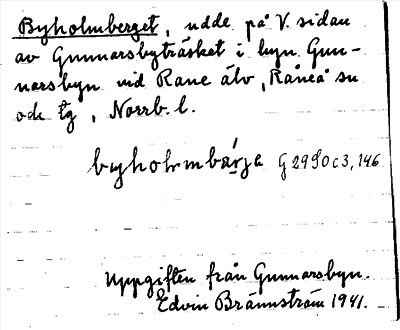 Byholmberget, udde på V. sidan
av Gunnarsbyträsket i byn Gun-
narsbyn vid Rane älv, Råneå sn
och tg, Norrb. l.
byholmbärje G 2980c3, 146
Uppgiften från Gunnarsbyn.
Edvin Brännström 1941.